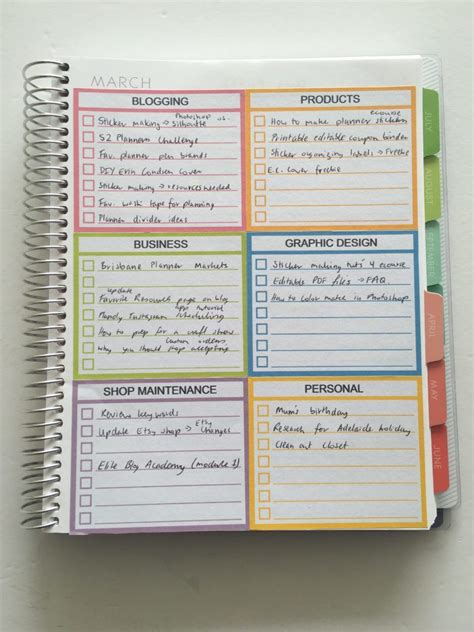 MARCH
BLOGGING
Photoshop vs.
Sticker making → Silhouette
52 Planners Challenge
Fav. planner pen brands
DIY Erin Condren Cover
Sticker making → resources needed
Fav. washi tape for planning
Planner divider ideas
PRODUCTS
ecourse
How to make planner stickers
Printable editable coupon binder
Sticker organizing labels → Freebie
E.C. cover freebie
BUSINESS
Brisbane Planner Markets
update
Favorite Resources page on blog
app tutorial
Handy Instagram scheduling
How to prep for a craft show
custom orders
Why you should stop accepting
GRAPHIC DESIGN
Sticker making tuts 4 ecourse
Editable PDF files → FAQ
How to color match in Photoshop
SHOP MAINTENANCE
Review keywords
Etsy
Update Etsy shop → Changes
Elite Blog Academy (module 1)
PERSONAL
Mum's birthday
Research for Adelaide holiday
Clean out closet
JULY
AUGUST
SEPTEMBER
APRIL
MAY
JUNE